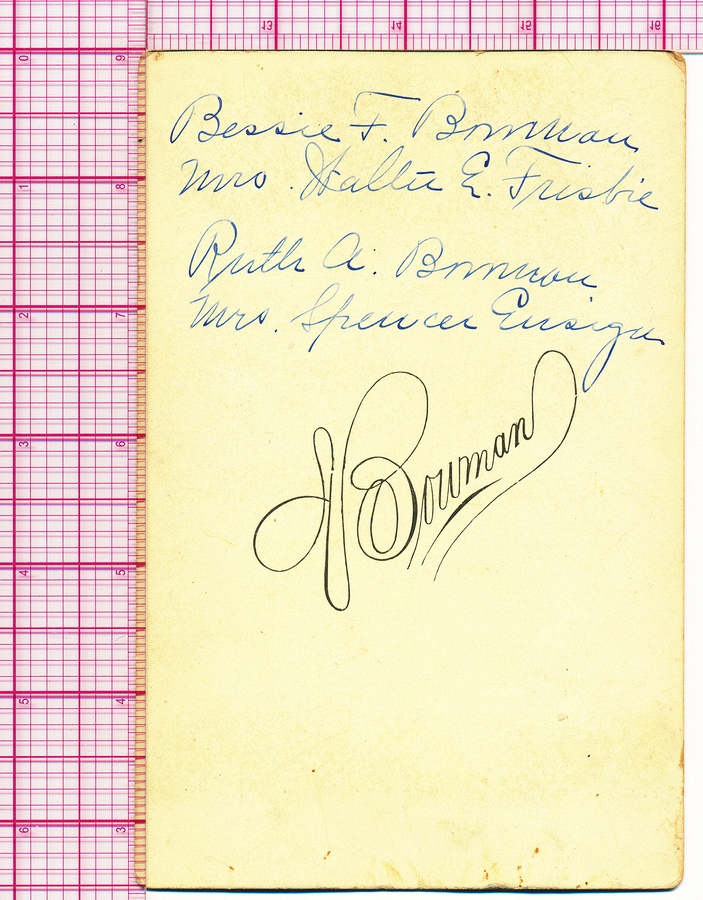 13 14 15 16
0 9
1 8
2 7
3 6
4 5
5 4
6 3
Bessie F. Bowman
Mrs. Walter E. Frisbie
Ruth A. Bowman
Mrs. Spencer Ensign
Bowman